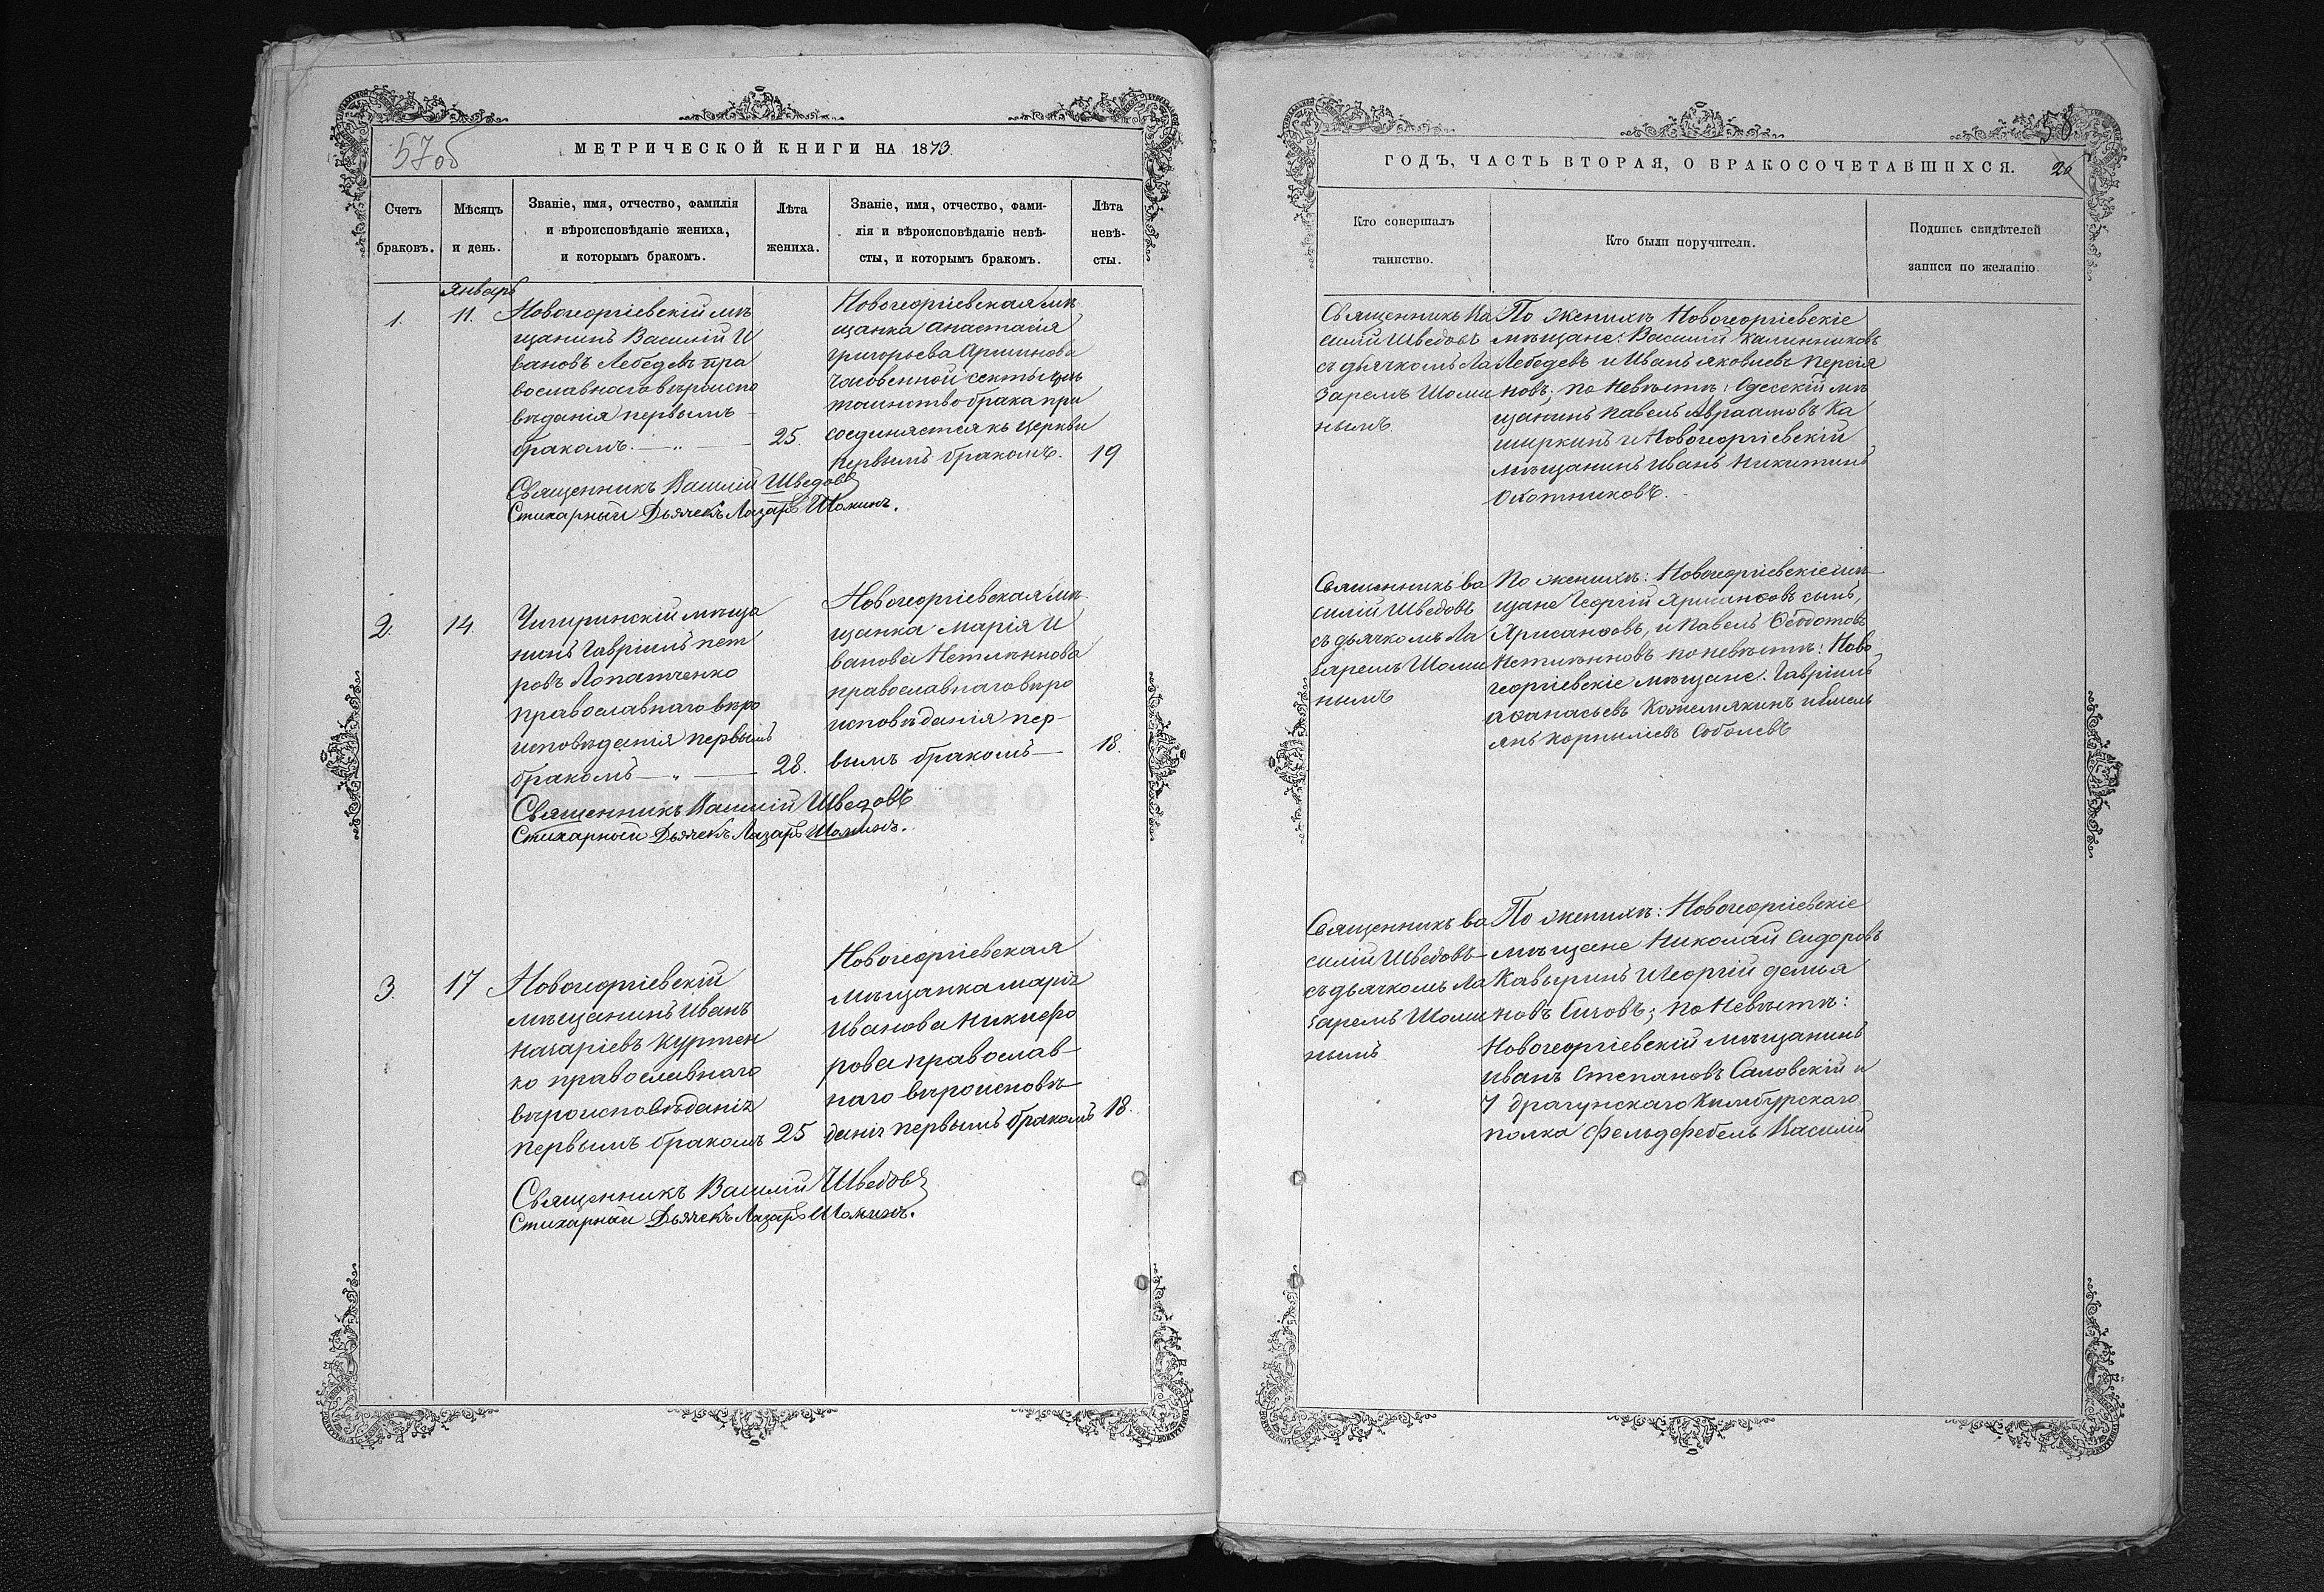 57 об
МЕТРИЧЕСКОЙ КНИГИ НА 1873
Счетъ
браковъ.
Мѣсяцъ
и день.
Званіе, имя, отчество, фамилія
и вѣроисповѣданіе жениха,
и которымъ бракомъ.
Лѣта
жениха.
Званіе, имя, отчество, фами-
лія и вѣроисповѣданіе невѣ-
сты, и которымъ бракомъ.
Лѣта
невѣ-
сты.
Январь
1.
11.
Новогеоргіевскій мѣ
щанинъ Василій И
вановъ Лебедевъ пра
вославнаго вѣроиспо
вѣданія первымъ
бракомъ.
25.
Новогеоргіевская мѣ
щанка Анастасія
григорьева Аршинова
часовенной секты чрезъ
таинство брака при
соединяется къ церкви
первымъ бракомъ.
19
Священникъ Василій Шведовъ
Стихарный Дьячекъ Лазарь Шоминъ.
2.
14.
Чигиринскій мѣща
нинъ Гавріилъ пет
ровъ Лопатченко
православнаго вѣро
исповѣданія первымъ
бракомъ
28.
Новогеоргіевская мѣ
щанка Марія И
ванова Нетлѣннова
православнаго вѣро
исповѣданія пер-
вымъ бракомъ
18.
Священникъ Василій Шведовъ
Стихарный Дьячекъ Лазарь Шоминъ.
3.
17
Новогеоргіевскій
мѣщанинъ Иванъ
Назаріевъ Куртен
ко православнаго
вѣроисповѣданія
первымъ бракомъ
25
Новогеоргіевская
мѣщанка марія
иванова Никифо
рова православ-
наго вѣроисповѣ
данія первымъ бракомъ
18.
Священникъ Василій Шведовъ
Стихарный Дьячекъ Лазарь Шоминъ.
58
ГОДЪ, ЧАСТЬ ВТОРАЯ, О БРАКОСОЧЕТАВШИХСЯ.
26
Кто совершалъ
таинство.
Кто были поручители.
Подпись свидѣтелей
записи по желанію.
Священникъ Ва
силій Шведовъ
съ дьячкомъ Ла
заремъ Шоми
нымъ
По женихѣ Новогеоргіевскіе
мѣщане: Василій Калинниковъ
Лебедевъ и Иванъ яковлевъ Персія
новъ; по Невѣстѣ: Одесскій мѣ
щанинъ Павелъ Авраамовъ Ка
ширкинъ и Новогеоргіевскій
мѣщанинъ Иванъ Никитинъ
Охотниковъ.
Священникъ Ва
силій Шведовъ
съ дьячкомъ Ла
заремъ Шоми
нымъ
По женихѣ: Новогеоргіевскіе мѣ
щане Георгій Хрисанфовъ сынъ,
Хрисанфовъ, и Павелъ Ѳеодотовъ
Нетлѣнновъ по невѣстѣ: Ново
георгіевскіе мѣщане. Гавріилъ
аѳанасьевъ Кожемякинъ иЕмель
янъ Корниліевъ Соболевъ
Священникъ Ва
силій Шведовъ
съ дьячкомъ Ла
заремъ Шоми
нымъ
По женихѣ: Новогеоргіевскіе
мѣщане Николай Сидоровъ
Кавыринъ и Георгій демья
новъ Бичовъ; по Невѣстѣ:
Новогеоргіевскій мѣщанинъ
Иванъ Степановъ Саловскій и
7 драгунскаго Кинбурскаго
полка фельдфебель Василій